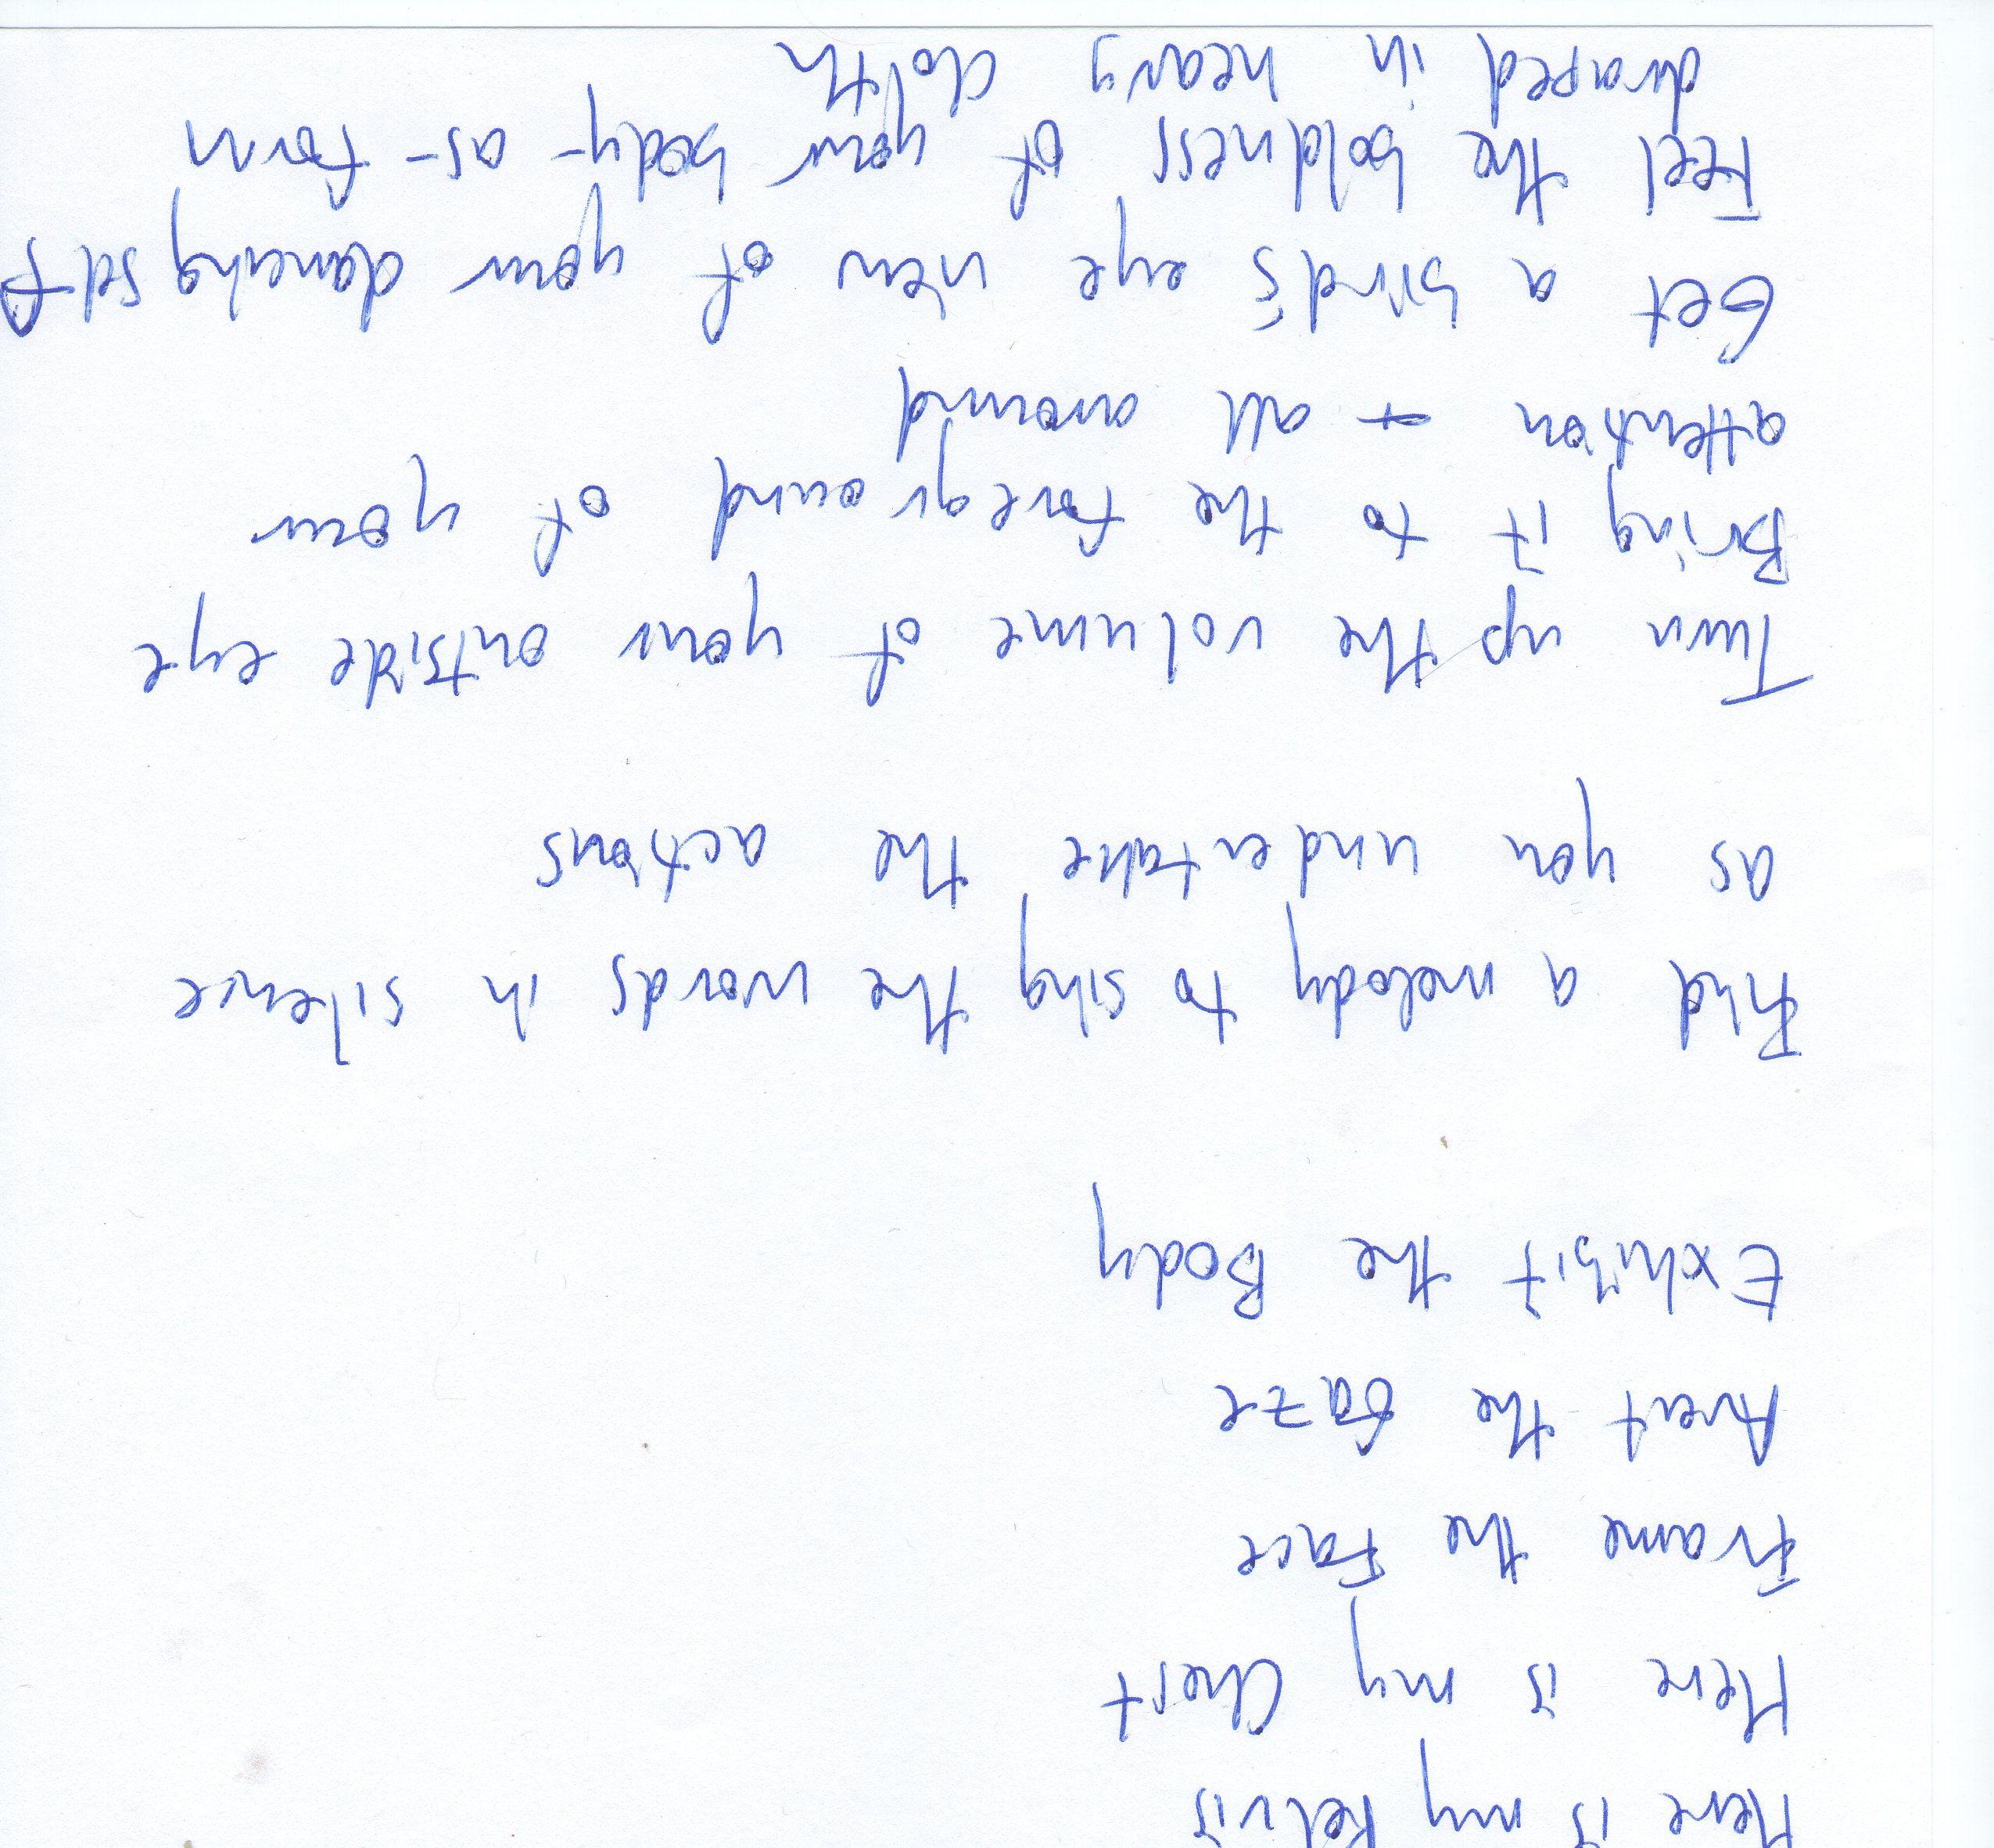 Here is my Pelvis
Here is my Chest
Frame the Face
Avert the Gaze
Exhibit the Body
Find a melody to sing the words in silence
as you undertake the actions
Turn up the volume of your outside eye
Bring it to the foreground of your
attention + all around
Get a bird's eye view of your dancing self
Feel the boldness of your body-as-form
draped in heavy cloth